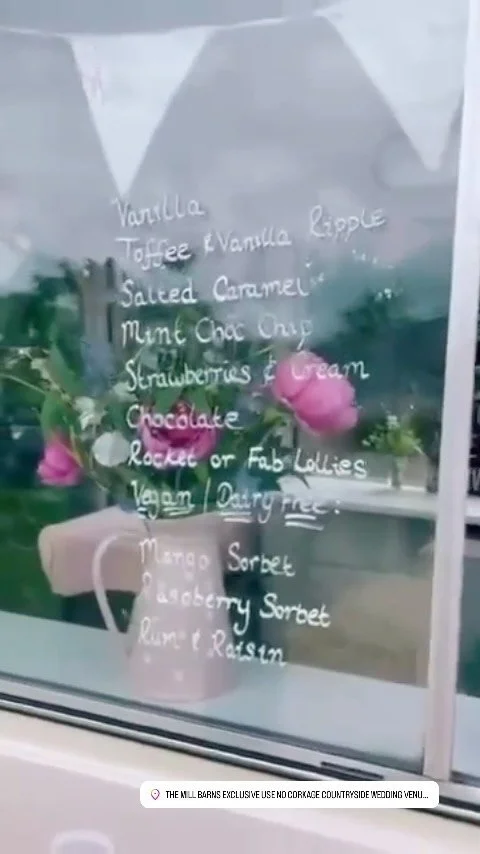 Vanilla
Toffee & Vanilla Ripple
Salted Caramel
Mint Choc Chip
Strawberries & Cream
Chocolate
Rocket or Fab Lollies
Vegan / Dairy Free:
Mango Sorbet
Raspberry Sorbet
Rum & Raisin
THE MILL BARNS EXCLUSIVE USE NO CORKAGE COUNTRYSIDE WEDDING VENU...